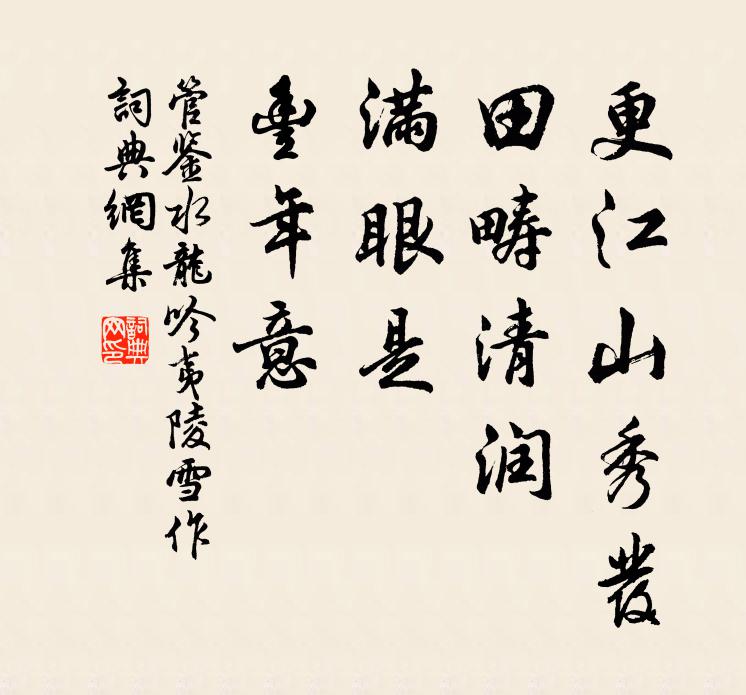 更江山秀發
田疇清润
滿眼是
豐年意
管鉴水龍吟夷陵雪作
詞典網集
詞典
网印